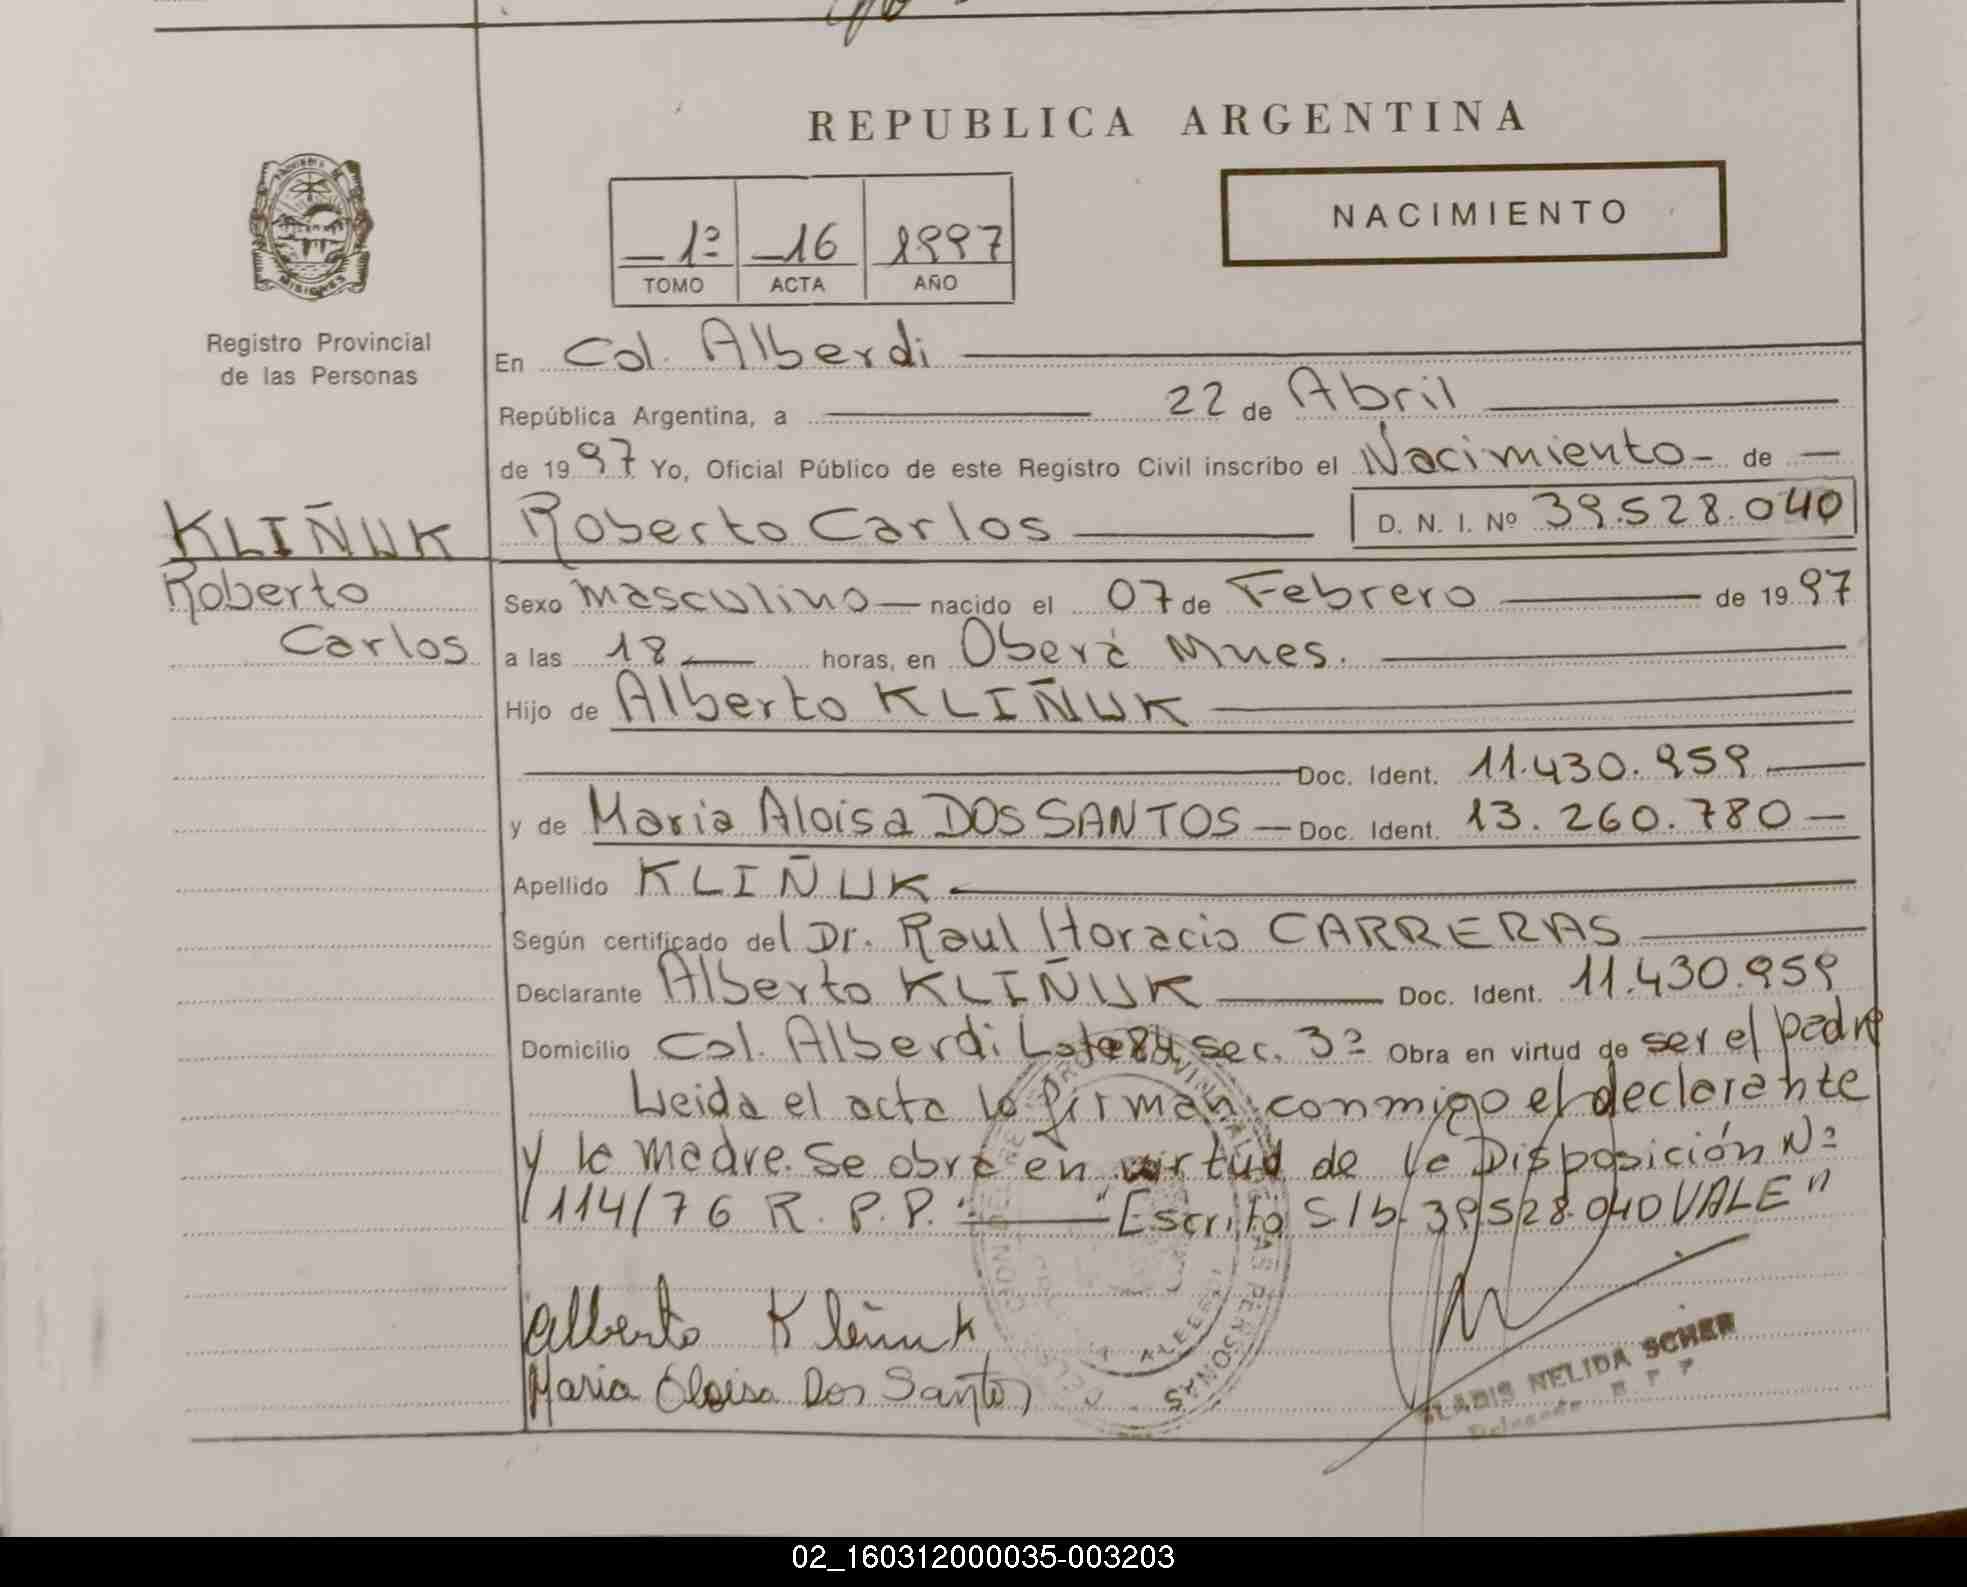 REPUBLICA ARGENTINA
NACIMIENTO
1º 16 1997
TOMO ACTA AÑO
MISIONES
Registro Provincial
de las Personas
En Col. Alberdi
República Argentina, a 22 de Abril
de 1997 Yo, Oficial Público de este Registro Civil inscribo el Nacimiento de
KLIÑUK Roberto Carlos D. N. I. Nº 39.528.040
Roberto Sexo masculino nacido el 07 de Febrero de 1997
Carlos a las 18 horas, en Oberá Mnes.
Hijo de Alberto KLIÑUK
Doc. Ident. 11.430.959
y de Maria Aloisa DOS SANTOS Doc. Ident. 13.260.780
Apellido KLIÑUK
Según certificado del Dr. Raul Horacio CARRERAS
Declarante Alberto KLIÑUK Doc. Ident. 11.430.959
Domicilio Col. Alberdi Lote sec. 3º Obra en virtud de ser el padre
Leida el acta la firman conmigo el declarante
y la madre. Se obra en virtud de la Disposición Nº
114/76 R. P. P. "Escrito S/b. 39.528.040 VALE"
Alberto Kliñuk
Maria Eloisa Dos Santos
GLADIS NELIDA SCHER
02_160312000035-003203